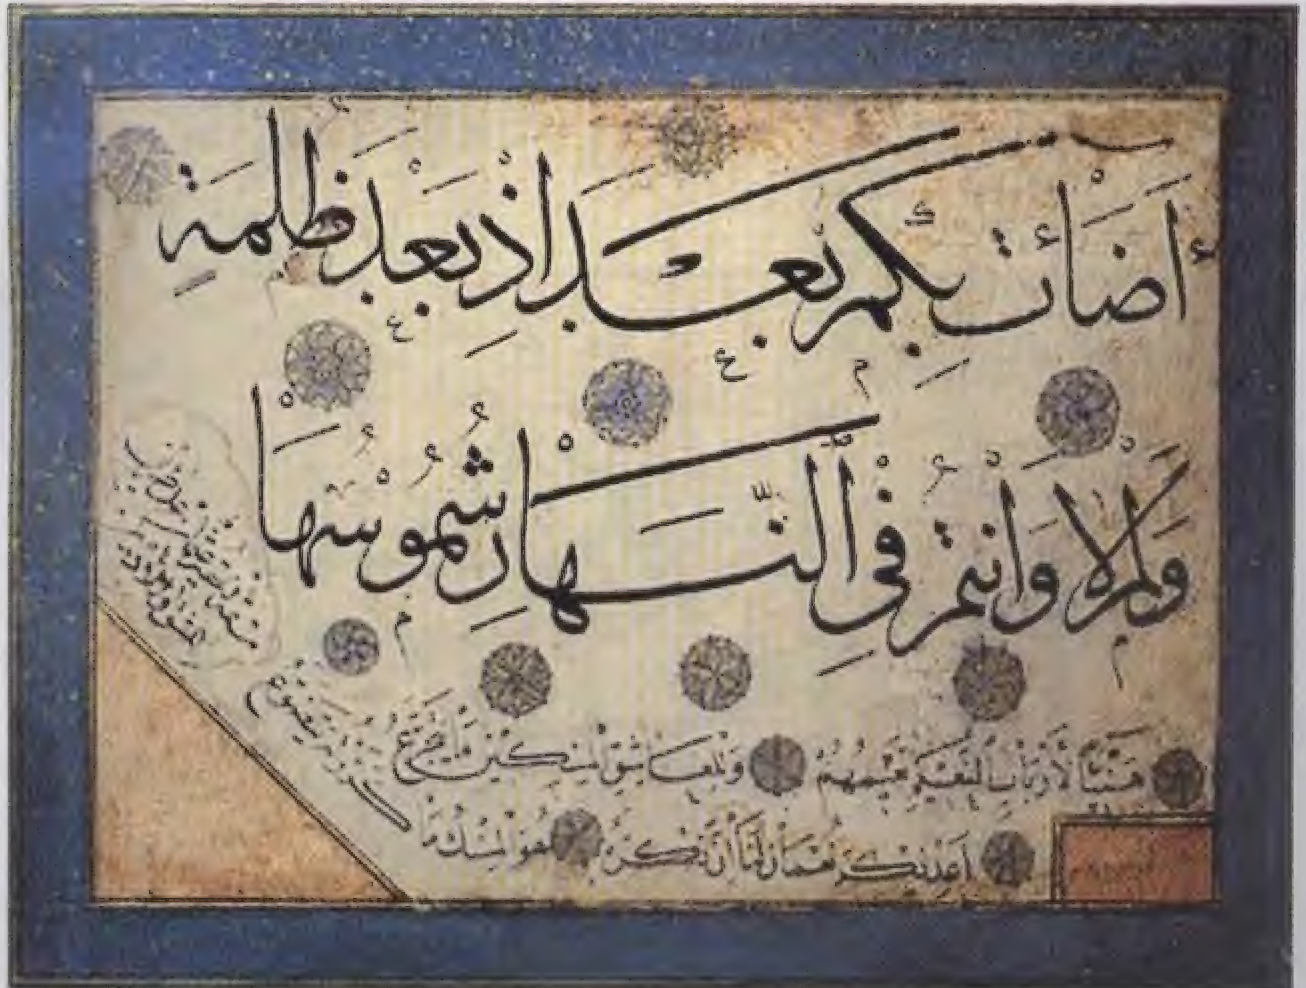 أَضَائَت بِكُم بَعْد اذْ بَعْدَ ظُلمَةِ
وَلِمْ لَا وَانْتُم فِى النَّهَارِ شُمُوْسُهَا
هَنِيْئًا لِأَرْبَابِ النَّعِيْمِ نَعِيْمُهُمْ وَلِلْعَاشِقِ الْمِسْكِيْنِ مَا يَتَجَرَّعُ
أَعِدْ ذِكْرَ نُعْمَانٍ لَنَا إِنَّ ذِكْرَهُ هُوَ الْمِسْكُ مَا كَرَّرْتَهُ يَتَضَوَّعُ